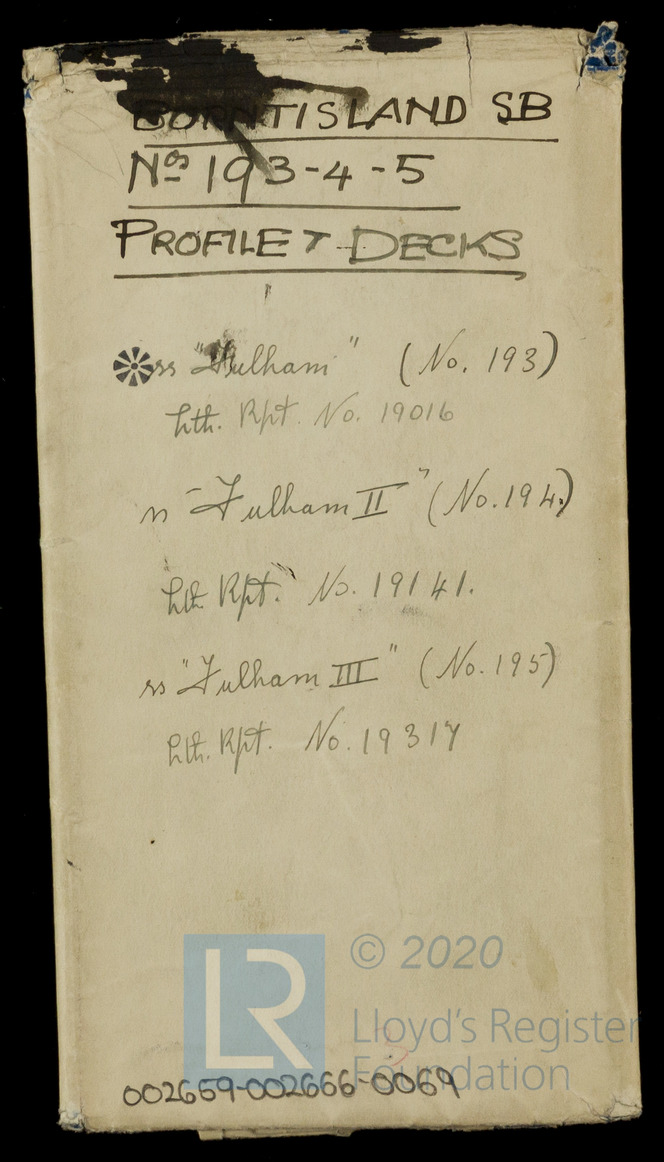 BURNTISLAND SB
Nos 193-4-5
PROFILE & DECKS
ss "Fulham" (No. 193)
Lth. Rpt. No. 19016
ss "Fulham II" (No. 194)
Lth. Rpt. No. 19141.
ss "Fulham III" (No. 195)
Lth. Rpt. No. 19317
LR
© 2020
Lloyd's Register
Foundation
002659-002666-0069